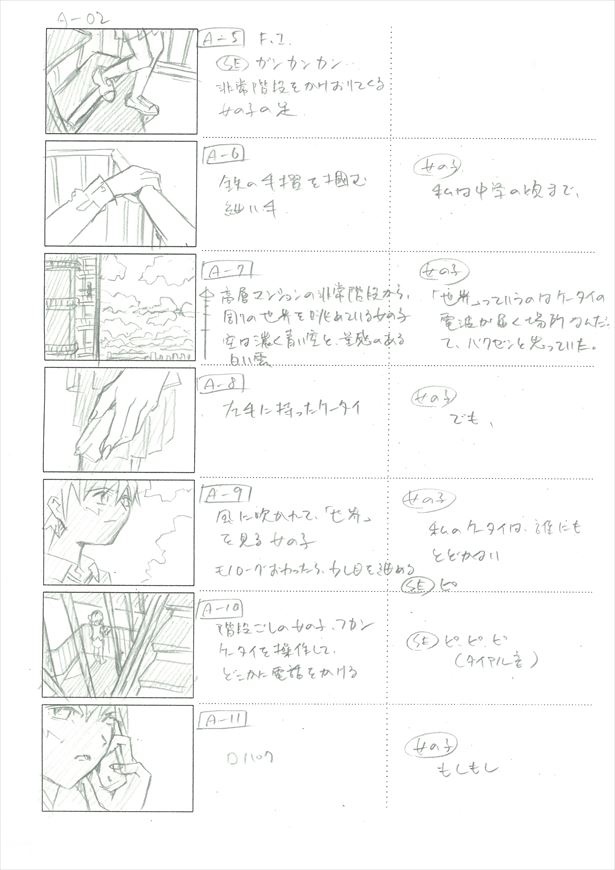 A-02
A-5 F.I
SE ガンカンカン…
非常階段をかけおりてくる
女の子の足
A-6
鉄の手摺を掴む
細い手
女の子
私は中学の頃まで、
A-7
高層マンションの非常階段から、
周りの世界を眺めている女の子
空は濃く青い空と、量感のある
白い雲
女の子
「世界」っていうのはケータイの
電波が届く場所なんだっ
て、バクゼンと思っていた。
A-8
左手に持ったケータイ
女の子
でも、
A-9
風に吹かれて、「世界」
を見る女の子
モノローグおわったら、少し目を細める
女の子
私のケータイは、誰にも
とどかない
SE ピ
A-10
階段ごしの女の子、フカン
ケータイを操作して、
どこかに電話をかける
SE ピ、ピ、ピ
(ダイアル音)
A-11
女の子
もしもし